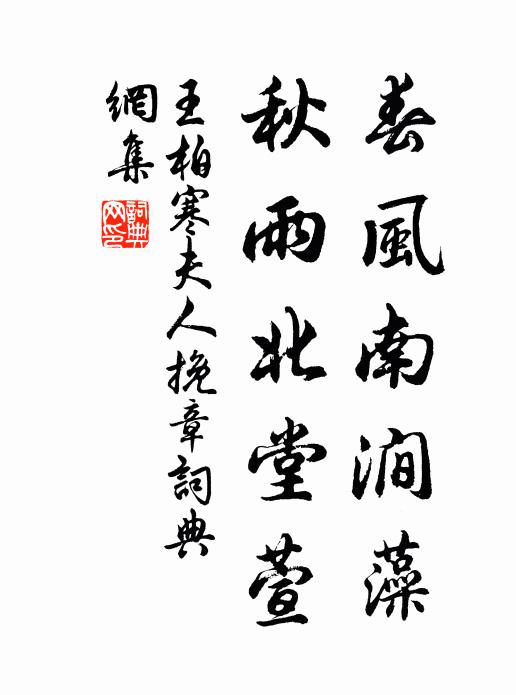 春風南澗藻
秋雨北堂萱
王柏寒夫人挽章詞典
網集
詞典
网印